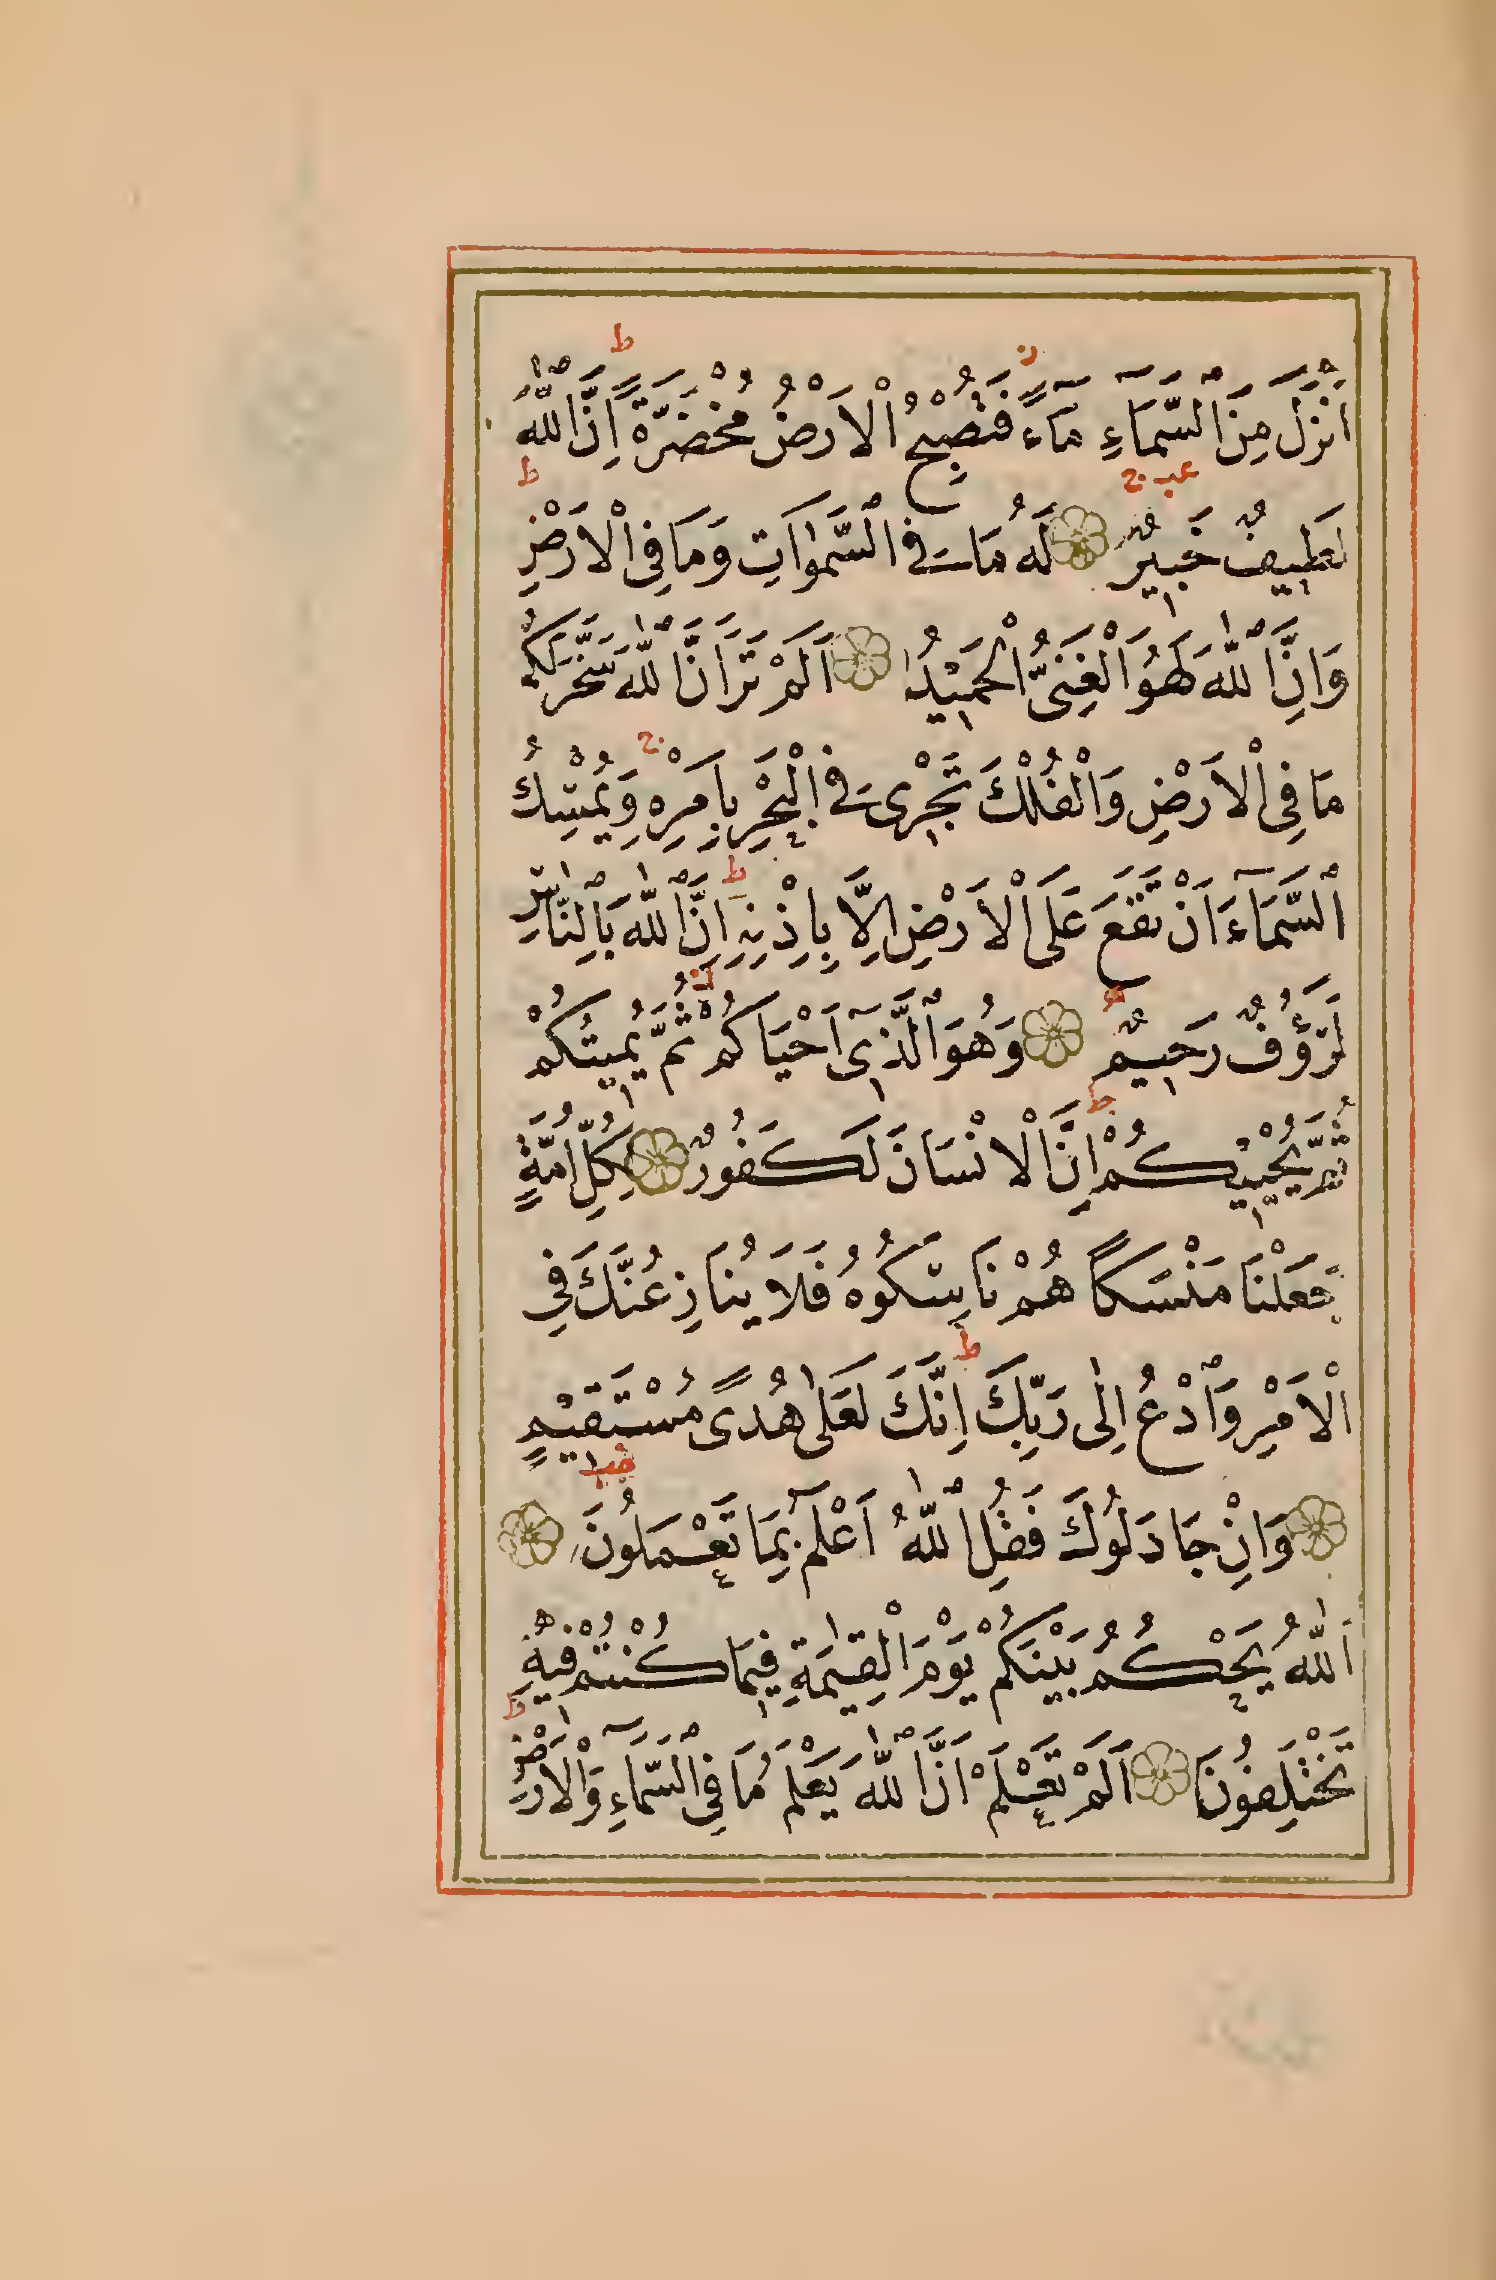 اَنْزَلَ مِنَ السَّمَآءِ مَآءً فَتُصْبِحُ الْاَرْضُ مُخْضَرَّةً اِنَّ اللّٰهَ
لَطِيفٌ خَبِيرٌ لَهُ مَا فِي السَّمٰوَاتِ وَمَا فِي الْاَرْضِ
وَاِنَّ اللّٰهَ لَهُوَ الْغَنِيُّ الْحَمِيْدُ اَلَمْ تَرَ اَنَّ اللّٰهَ سَخَّرَ لَكُمْ
مَا فِي الْاَرْضِ وَالْفُلْكَ تَجْرِي فِي الْبَحْرِ بِاَمْرِهِ وَيُمْسِكُ
السَّمَآءَ اَنْ تَقَعَ عَلَى الْاَرْضِ اِلَّا بِاِذْنِهِ اِنَّ اللّٰهَ بِالنَّاسِ
لَرَؤُفٌ رَحِيمٌ وَهُوَ الَّذِيٓ اَحْيَاكُمْ ثُمَّ يُمِيتُكُمْ
ثُمَّ يُحْيِيْكُمْ اِنَّ الْاِنْسَانَ لَكَفُورٌ لِكُلِّ اُمَّةٍ
جَعَلْنَا مَنْسَكًا هُمْ نَاسِكُوهُ فَلَا يُنَازِعُنَّكَ فِي
الْاَمْرِ وَادْعُ اِلٰى رَبِّكَ اِنَّكَ لَعَلٰى هُدًى مُسْتَقِيْمٍ
وَاِنْ جَادَلُوكَ فَقُلِ اللّٰهُ اَعْلَمُ بِمَا تَعْمَلُونَ
اَللّٰهُ يَحْكُمُ بَيْنَكُمْ يَوْمَ الْقِيٰمَةِ فِيمَا كُنْتُمْ فِيْهِ
تَخْتَلِفُونَ اَلَمْ تَعْلَمْ اَنَّ اللّٰهَ يَعْلَمُ مَا فِي السَّمَآءِ وَالْاَرْضِ